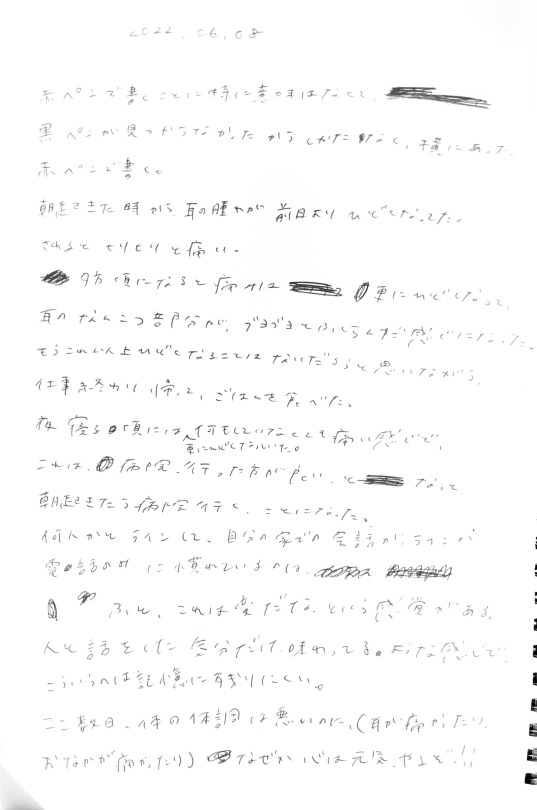 2022.06.08
赤ペンで書くことに特に意味はなくて、
黒ペンが見つからなかったからしかたなく、横にあった
赤ペンで書く。
朝起きた時から耳の腫れが前日よりひどくなってた。
さわると とりとりと痛い。
夕方頃になると痛みは 更にひどくなって、
耳のなんこつ部分が、ブヨブヨとふくらんだ感じになった。
もうこれ以上ひどくなることはないだろうと思いながら、
仕事終わり帰って、ごはんを食べた。
夜寝る頃には何もしていなくても痛い感じで、
更にひどくなっていた。
これは、病院行った方がいい、と なって
朝起きたら病院行く、ことになった。
何人かとラインして、自分の家での会話が、ラインか
電話のみに慣れているのは、
ふと、これは変だな、という感覚がある。
人と話をした気分だけ味わってるような感じで、
こういうのは記憶に残りにくい。
ここ数日、体の体調は悪いのに、(耳が痛かったり、
おなかが痛かったり) なぜか心は元気。やるぞ!!